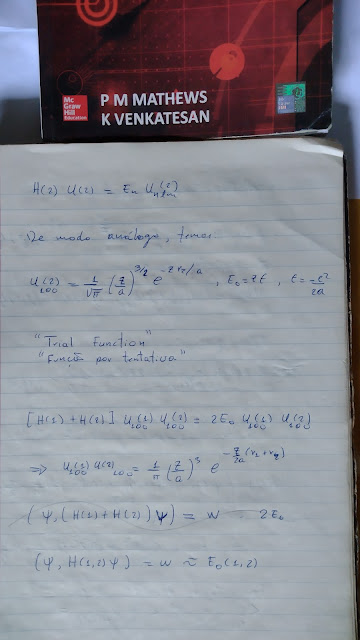 Mc
Graw
Hill
Education
P M MATHEWS
K VENKATESAN
H(2) U(2) = En Unlm(2)
De modo análogo, temos
U100(2) = 1/√π (Z/a)^3/2 e^-Zr2/a , E0 = Z ε , ε = -e²/2a
"Trial Function"
"Função por tentativa"
[H(1) + H(2)] U100(1) U100(2) = 2E0 U100(1) U100(2)
⇒ U100(1) U100(2) = 1/π (Z/a)^3 e^-Z/2a (r1+r2)
(ψ, (H(1) + H(2)) ψ) = W 2E0
(ψ, H(1,2) ψ) = W ≈ E0(1,2)